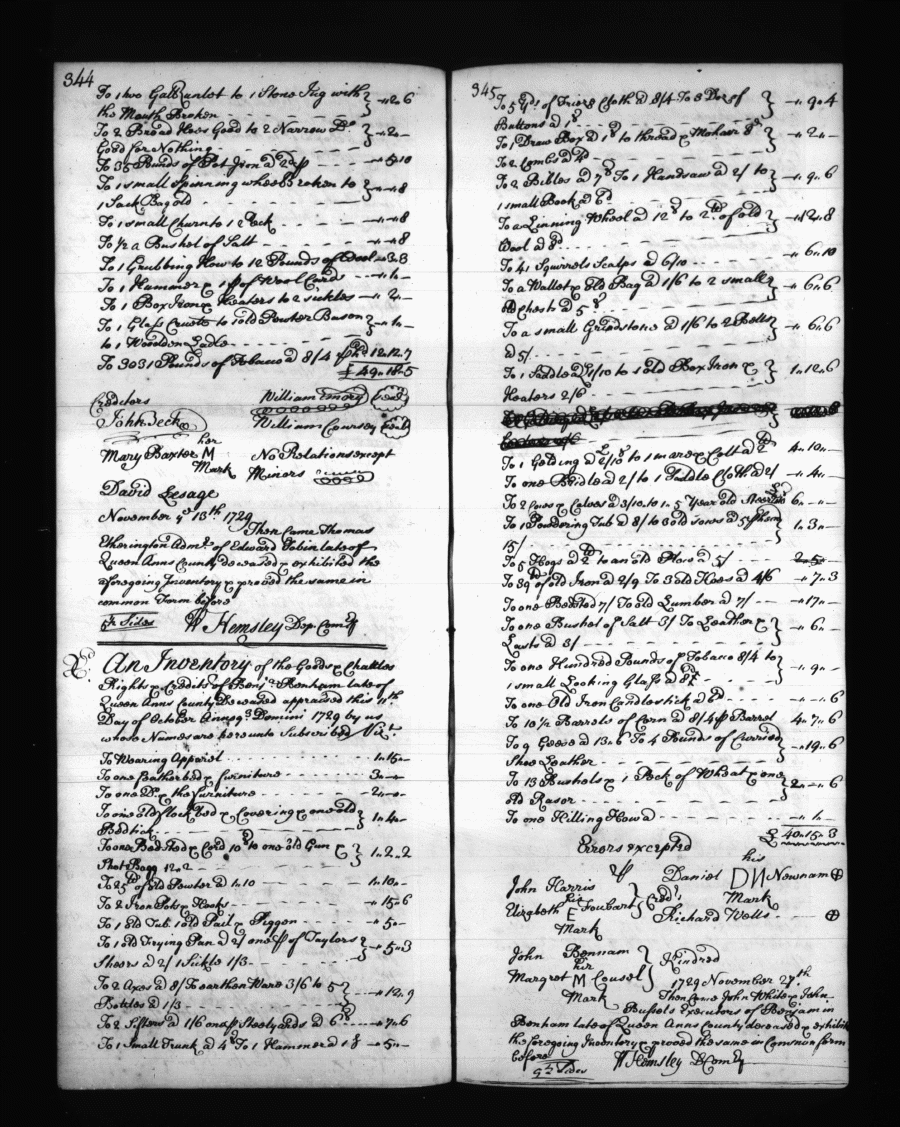 344
To two Gall Runlet to 1 Stone Jug with
the Mouth Broken - - - - - -"2"6
To 2 Broad Hoes Good to 2 Narrow Do
Good for Nothing - - - - -"2"-
To 35 Pounds of Pot Iron a 2d p - - -"5"10
To 1 small spinning wheel Broken to
1 Sack Bag old - - - - -"-"8
To 1 small Churn to 1 Peck - - - - -"-"8
To 1/2 a Bushel of Salt - - - - -"-"8
To 1 Grubbing How to 12 Pounds of Wool -"3"3
To 1 Hammer & 1 pr of Wool Cards - - -"1"-
To 1 Box Iron & Heaters to 2 sickles - -"2"-
To 1 Glass Cruete to 1 old Pewter Bason
to 1 Woodden Ladle - - - - -"1"-
To 3031 Pounds of Tobacco a 8/4 p Hd 12"12"7
£ 49"18"5
Creditors William Emory Seal
John Seck William Coursey Seal
her
Mary Baxter M No Relations except
Mark Minors
David Lesage
November ye 13th 1729
Then Came Thomas
Etherington Admr of Edward Tobin late of
Queen Anns County deceased & exhibited the
aforegoing Inventory & proved the same in
common Form before
Sides W Hemsley Dep Comry
An Inventory of the Goods & Chattles
Rights & Credits of Benja Bonham late of
Queen Anns County Deceased appraised this 11th
Day of October Annoq Domini 1729 by us
whose Names are hereunto Subscribed Vizt
To Wearing Apparel - - - - 1"15"-
To one featherbed & furniture - - - - 3"-"-
To one Do & the furniture - - - - 2"-"-
To one old flock bed & Covering & one old
Bedtick - - - - - 1"4"-
To one Bedsted & Cord 10s to one old Gun &
Shot Bagg 12"2 - - 1"2"2
To 25lb of old Pewter a 1"10 - - - - 1"10"-
To 2 Iron Pots & Hooks - - - - -"15"6
To 1 old Tub 1 old Pail & Piggon - - - -"5"-
To 1 old Frying Pan a 2/ one pr of Taylors
Sheers a 2/ 1 Sickle 1/3 - - - -"5"3
To 2 Axes a 8/ To earthen Ware 3/6 to 5
Bottles a 1/3 - - - - -"12"9
To 2 Sifters a 1/6 one pr Steelyards a 6s -"7"6
To 1 Small Trunk a 4s To 1 Hammer a 1s -"5"-
345
To 5 yds of Frieze Cloth a 8/4 To 3 Doz of
Buttons a 1s - - - - -"9"4
To 1 Draw Box a 1s to thread & Mohair 8d
To 2 Combs a 4d - - - - -"2"-
To 2 Bibles a 7s To 1 Handsaw a 2/ to
1 small Book a 6d - - - - -"9"6
To a Linning Wheel a 12s to 2lb of old
Wool a 8d - - - - -"12"8
To 41 Squirrels Scalps a 6/10 - - - - -"6"10
To a Wallet & old Bag a 1/6 to 2 smalle
old Chests a 5s - - - - -"6"6
To a small Grindstone a 1/6 to 2 Bells
a 5/ - - - - -"6"6
To 1 Saddle a 1/10 to 1 old Box Iron &
Heaters 2/6 - - - - 1"12"6
To 1 Gelding a 2/10 to 1 mare & Colt a 2£ 4"10"-
To one Bridle a 2/ to 1 Saddle Cloth a 2/ -"4"-
To 2 Cows & Calves a 3/10 to 1 5 Year old Steer 6"-"-
To 1 Powdering Tub a 8/ to 3 old sows a 5s
15/ - - - - 1"3"-
To 5 Hogs a 2£ to an old Plow a 5/ - - 2"5"-
To 39 of old Iron a 2/9 To 3 old Hoes a 4/6 -"7"3
To one Bedsted 7/ To old Lumber a 7/ - - -"17"-
To one Bushel of Salt 3/ To Leather &
Lasts a 3/ - - - - -"6"-
To one Hundred Pounds of Tobacco 8/4 to
1 small Looking Glass a 8d - - - - -"9"-
To one Old Iron Candlestick a 6d - - - -"-"6
To 10 1/2 Barrels of Corn a 8/4 p Barrel 4"7"6
To 9 Geese a 13"6 To 4 Pounds of Curried
Shoe Leather - - - - -"19"6
To 13 Bushels & 1 Peck of Wheat & one
old Rasor - - - - 2"-"6
To one Killing How a - - - - -"1"-
£ 40"15"3
Errors excepted
his
Daniel DN Newnam
Mark
John Harris
her
Elizabeth E Foubart Credrs Richard Wells
Mark
John Bonnam
her Kindred
Margret M Counsel 1729 November 27th
Mark Then Came John White & John
Bussels Executors of Benjamin
Bonham late of Queen Anns County deceased & exhibit
the foregoing Inventory & proved the same in Common form
before W Hemsley D Comry
9 Sides